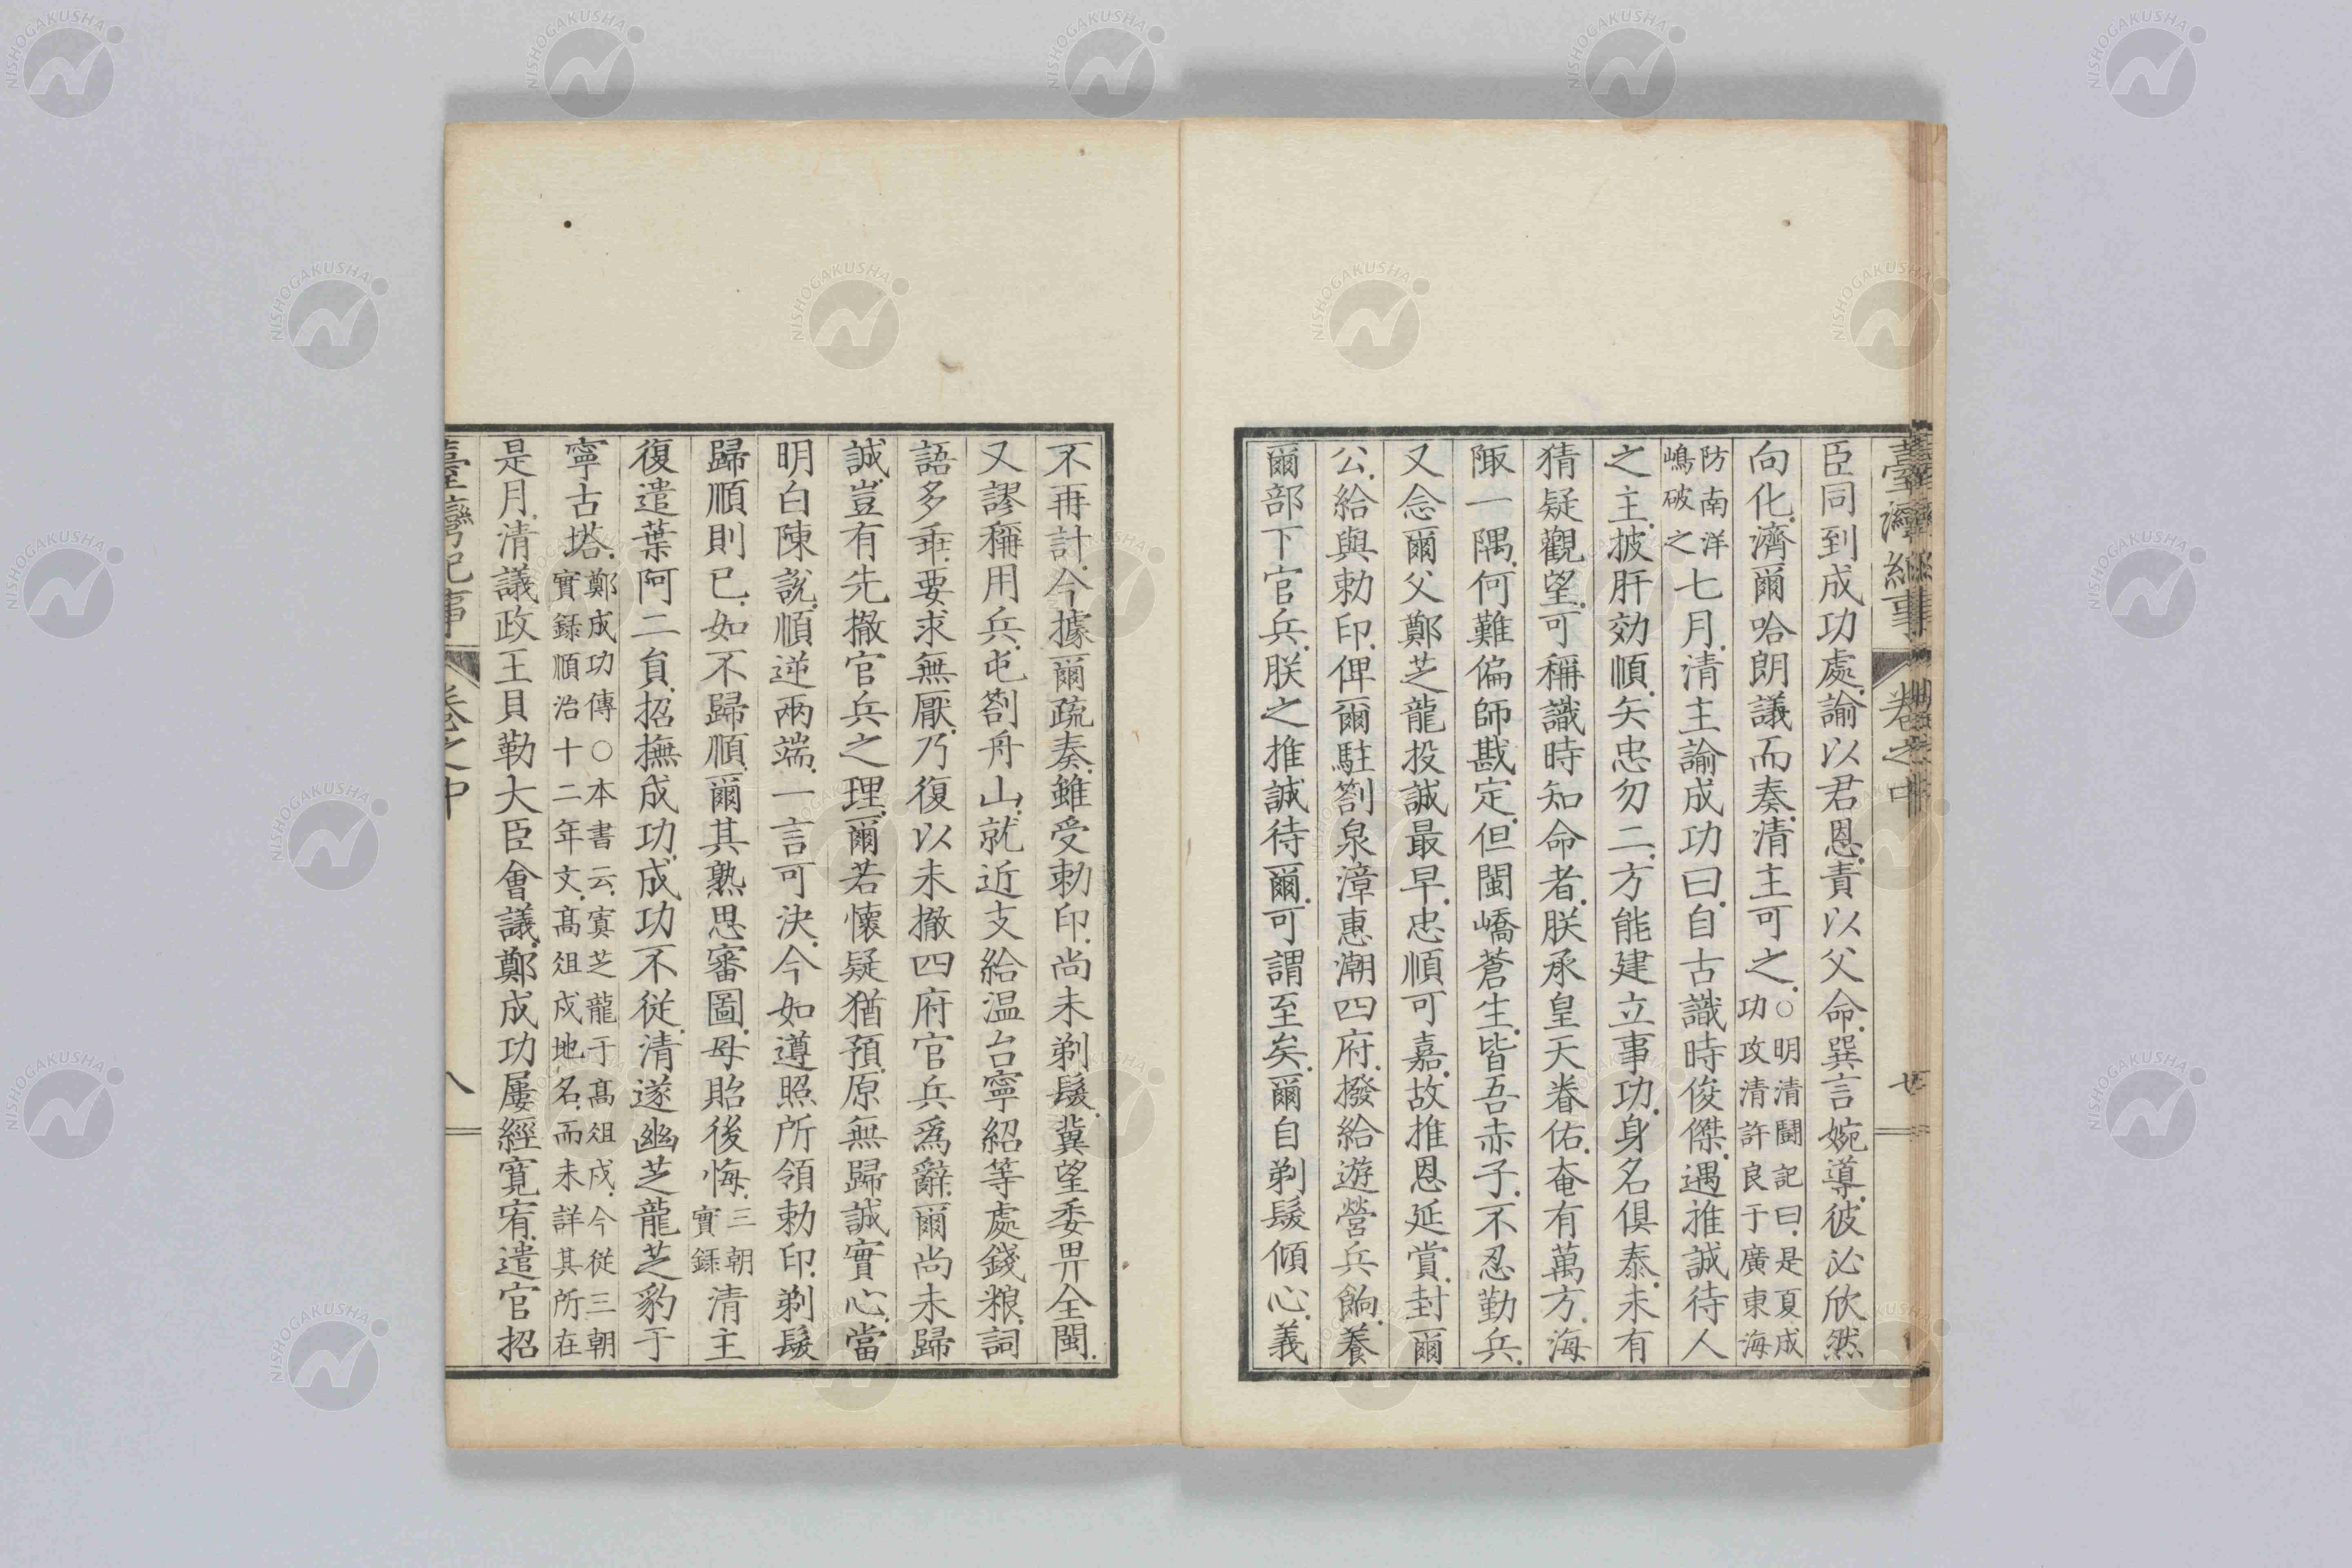 臺灣紀事 卷之中 七
臣同到成功處.諭以君恩.責以父命.巽言婉導.彼必欣然
向化.濟爾哈朗議而奏.清主可之.○明清鬪記曰.是夏成功攻清許良于廣東海
防南洋嶋破之七月.清主諭成功曰.自古識時俊傑.遇推誠待人
之主.披肝効順.矢忠勿二.方能建立事功.身名俱泰.未有
猜疑觀望.可稱識時知命者.朕承皇天眷佑.奄有萬方.海
陬一隅.何難偏師戡定.但閩嶠蒼生.皆吾赤子.不忍勤兵.
又念爾父鄭芝龍投誠最早.忠順可嘉.故推恩延賞.封爾
公.給與勅印.俾爾駐劄泉漳惠潮四府.撥給遊營兵餉.養
爾部下官兵.朕之推誠待爾.可謂至矣.爾自剃髮傾心.義
不再計.今據爾疏奏.雖受勅印.尚未剃髮.冀望委畀全閩.
又謬稱用兵.屯劄舟山.就近支給温台寧紹等處錢粮.詞
語多乖.要求無厭.乃復以未撤四府官兵爲辭.爾尚未歸
誠.豈有先撤官兵之理.爾若懷疑猶預.原無歸誠實心.當
明白陳説.順逆兩端.一言可決.今如遵照所領勅印.剃髮
歸順則已.如不歸順.爾其熟思審圖.毋貽後悔.三朝實録清主
復遣葉阿二貟.招撫成功.成功不從.清遂幽芝龍芝豹于
寧古塔.鄭成功傳○本書云.寘芝龍于髙俎戍.今從三朝實録順治十二年文.髙俎戍地名.而未詳其所在
是月.清議政王貝勒大臣會議.鄭成功屢經寬宥.遣官招
臺灣紀事 卷之中 八
NISHOGAKUSHA